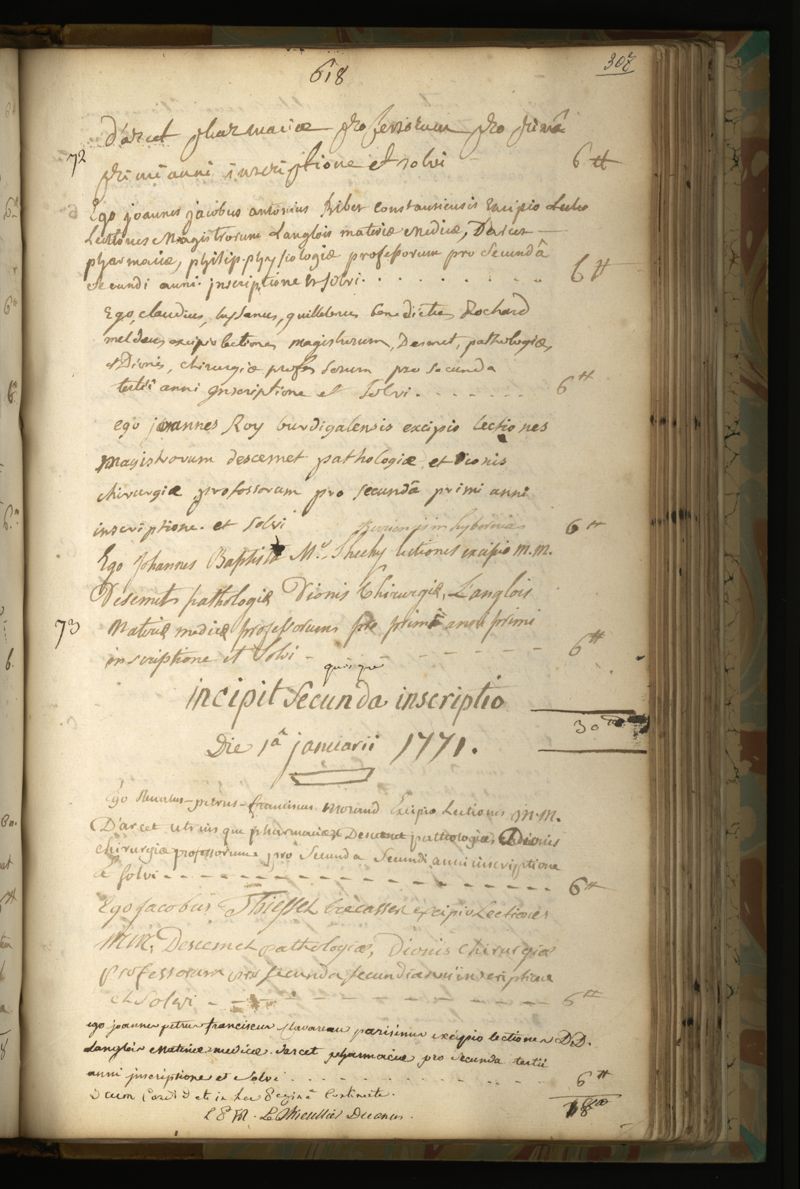 618
307
d'arcet pharmaciæ professorum pro primâ
72 primi anni inscriptione et solvi 6 ₶
Ego joannes jacobus antonius constantiensis Excipio
Lectiones Magistrorum Langlois materiæ medicæ, Darcet
pharmaciæ, philip physiologiæ professorum pro secundâ
secundi anni inscriptione et solvi . . . . . . . . . 6 ₶
Ego, claudius, guillelmus benedictus Rochard
meldeus excipio lectiones magistrorum, Desemet, pathologiæ,
et Dionis, chirurgiæ professorum pro secunda
tertii anni inscriptione et solvi . . . . . . . 6 ₶
ego joannes Roy burdigalensis excipio lectiones
Magistrorum descemet pathologiæ et Dionis
chirurgiæ professorum pro secundâ primi anni
inscriptione. et solvi 6 ₶
in hybernia
Ego Johannes Baptista Mc Sheehy lectiones excipio m.m.
Desemet pathologiæ Dionis Chirurgiæ, Langlois
73 Materiæ medicæ professorum pro primâ anni primi
inscriptione et Solvi - - - - - - - 6 ₶
quoique
incipit Secunda inscriptio
30 ₶
Die 1â januarii 1771.
Ego petrus-franciscus morand Excipio Lectiones M.M.
D'arcet utriusque pharmaciæ Descemet pathologiæ, Dionis
chirurgiæ professorum pro Secunda Secundi anni inscriptione
& solvi - - - - - - - - - - - - 6 ₶
Ego Jacobus Thiesset excipio Lectiones
M.M. Descemet pathologiæ, Dionis chirurgiæ
professorum pro secunda secundi anni inscriptione
et Solvi - - - - - - - - - - 6 ₶
ego joannes petrus franciscus Clavareau parisinus excipio lectiones D.D.
Langlois materiæ medicæ. darcet pharmaciæ pro secunda tertii
anni inscriptione et solvi . . . . . . . . . . . 6 ₶
et in hac
18 ₶
Le Thieullier Decanus.